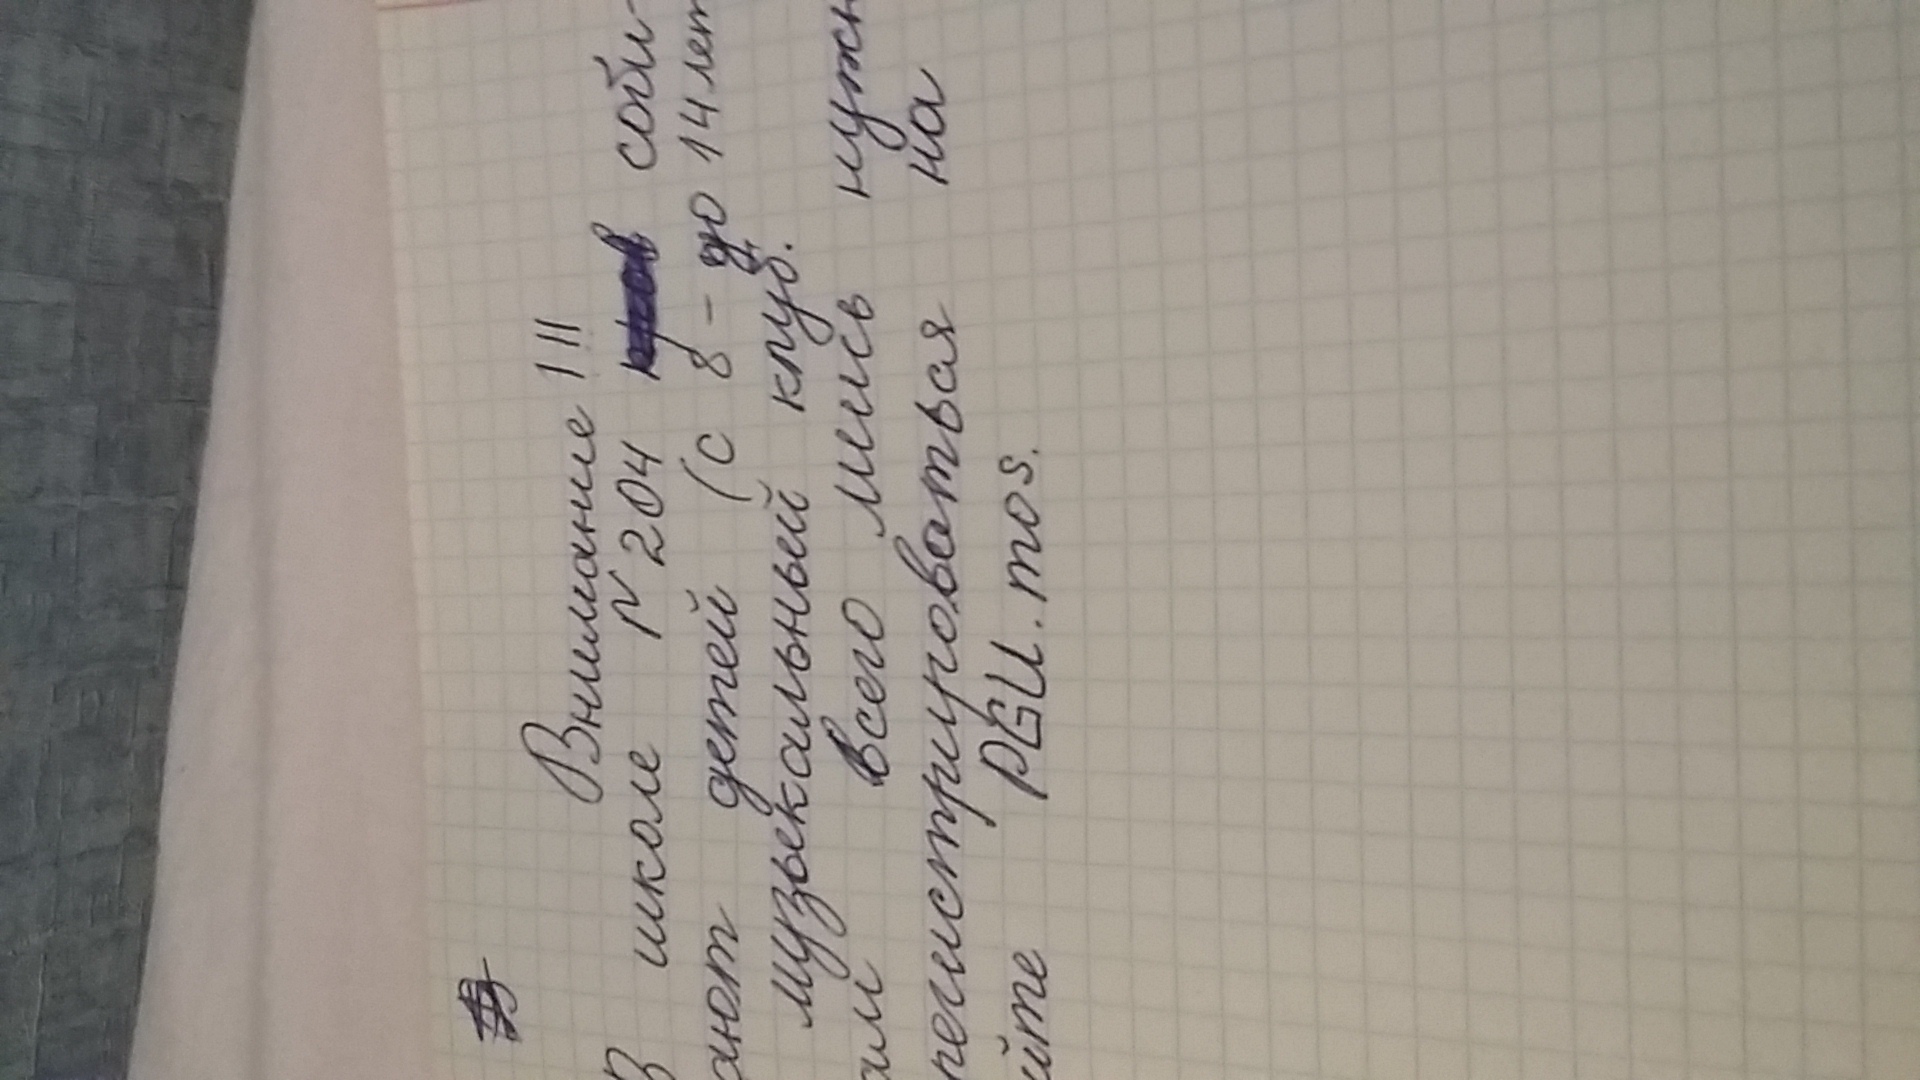 Внимание !!!
В школе №204 соби-
ают детей (с 8 - до 14 лет
музыкальный клуб.
ам всего лишь нужн
регистрироваться на
йте PGU.mos.